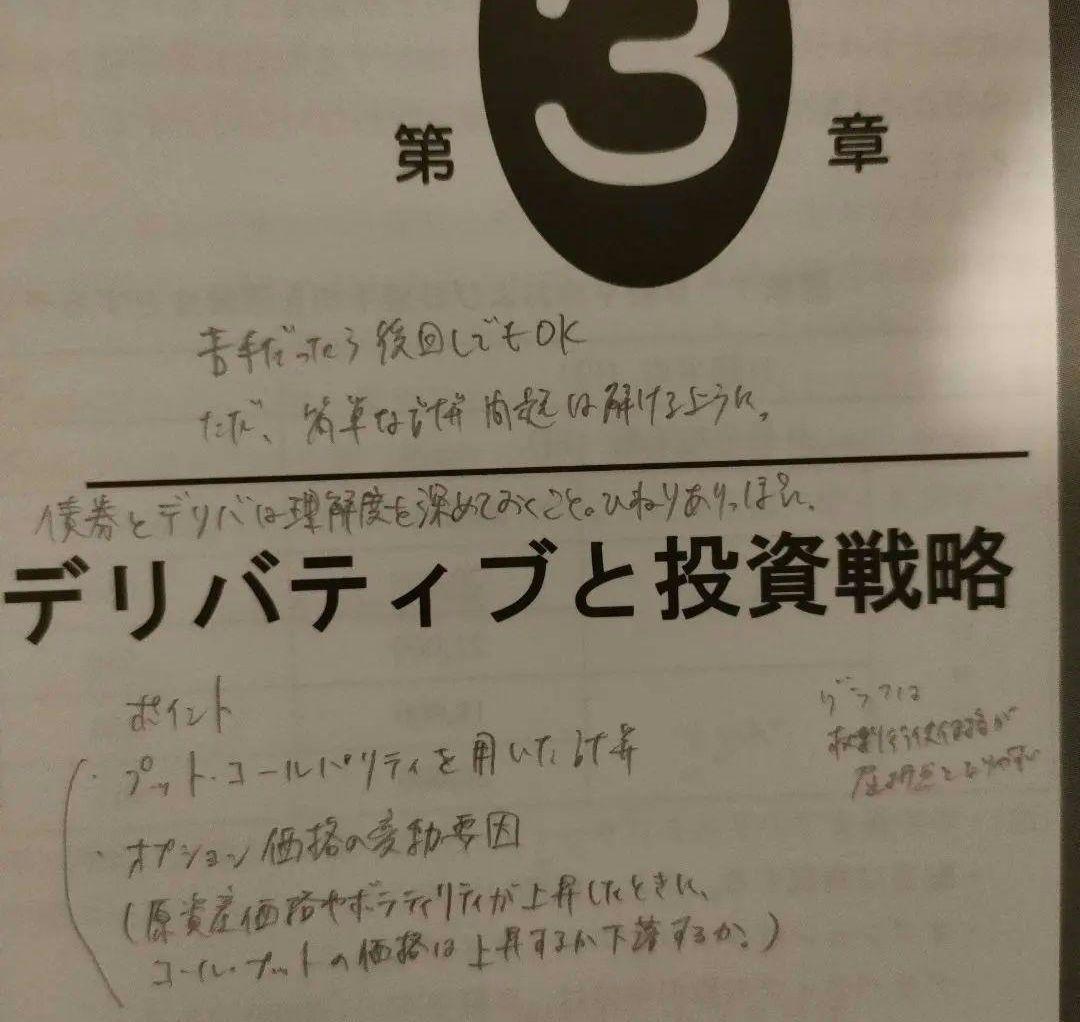 第3章
苦手だったら後回しでもOK
ただ、簡単な計算問題は解けるように。
債券とデリバは理解度を深めておくこと。ひねりありっぽい、
デリバティブと投資戦略
ポイント
・プット・コールパリティを用いた計算
・オプション価格の変動要因
(原資産価格やボラティリティが上昇したときに、
コール・プットの価格は上昇するか下落するか。)
グラフは
権利行使価格が
屈折点となりやすい